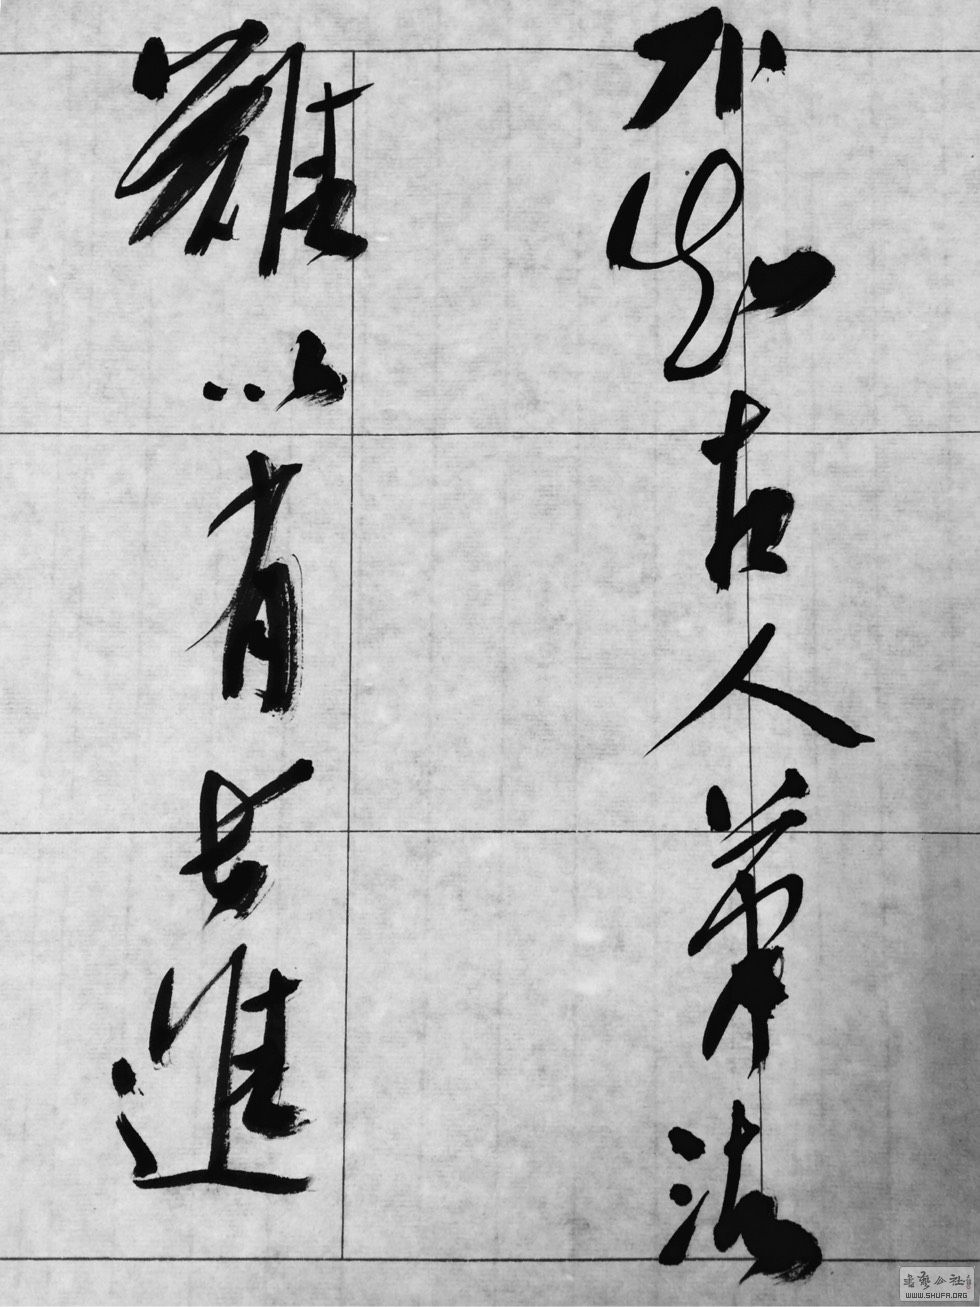 不知古人笔法
難以有長進
書藝公社
WWW.SHUFA.ORG